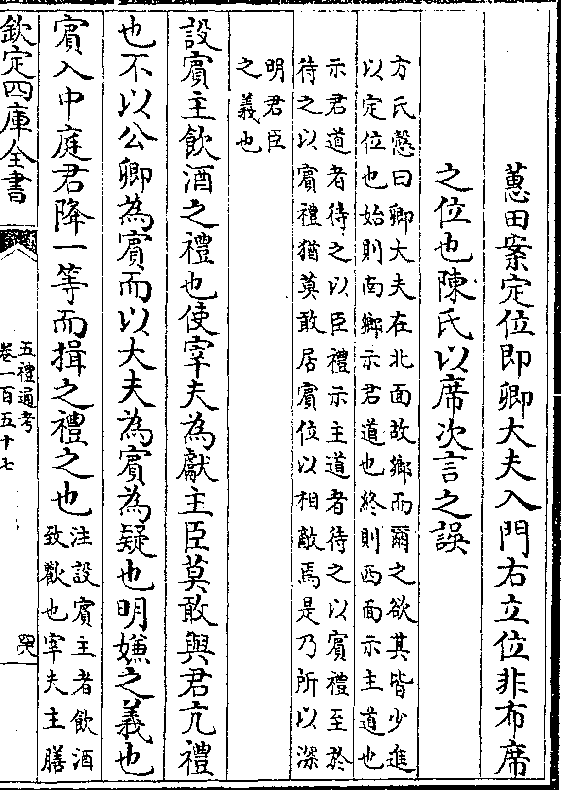 蕙田案定位即卿大夫入門右立位非布席
之位也陳氏以席次言之誤
方氏慤曰卿大夫在北面故鄉而爾之欲其皆少進
以定位也始則南鄉示君道也終則西面示主道也
示君道者待之以臣禮示主道者待之以賓禮至於
待之以賓禮猶莫敢居賓位以相敵焉是乃所以深
明君臣
之義也
設賓主飲酒之禮也使宰夫為獻主臣莫敢與君亢禮
也不以公卿為賓而以大夫為賓為疑也明嫌之義也
賓入中庭君降一等而揖之禮之也
注設賓主者飲酒
致歡也宰夫主膳
欽定四庫全書
五禮通考
卷一百五十七